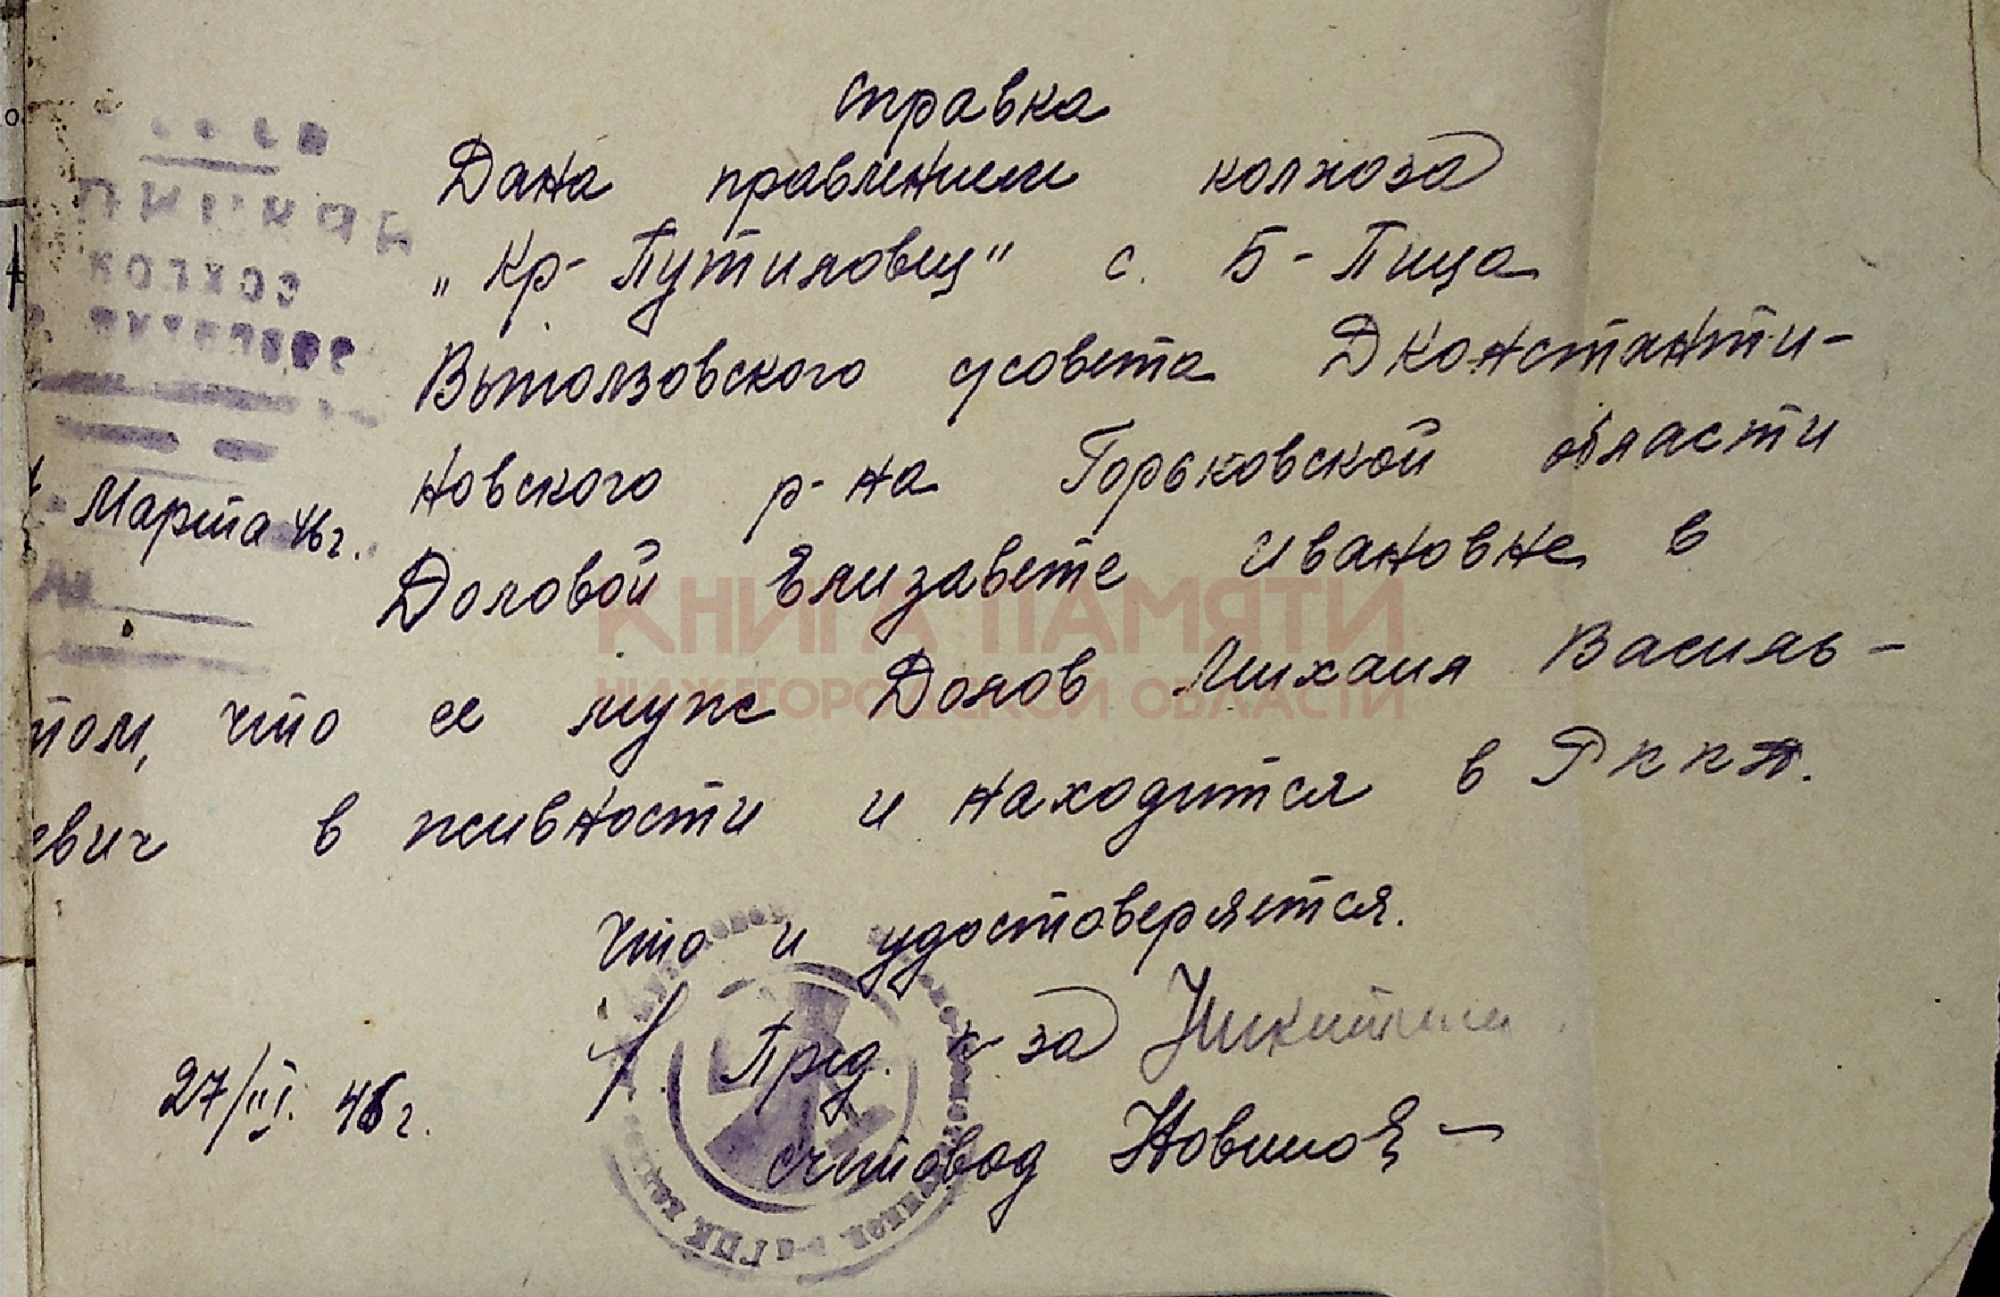 справка
Дана правлением колхоза
„Кр-Путиловец" с. Б-Пица
Вытолзовского с/совета Дконстанти-
новского р-на Горьковской области
Марта 46 г.
Доловой Елизавете ивановне в
том, что ее муж Долов Михаил Василь-
евич в живности и находится в РККА.
Что и удостоверяется.
Пред. к-за Никитин
27/III. 46 г.
счетовод
КНИГА ПАМЯТИ
НИЖЕГОРОДСКОЙ ОБЛАСТИ